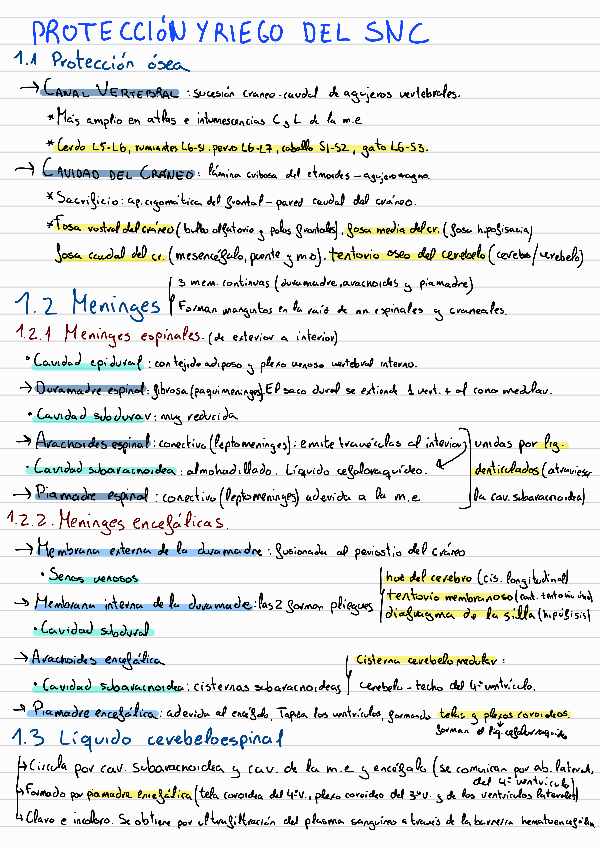 PROTECCIÓN Y RIEGO DEL SNC
1.1 Protección ósea
→ CANAL VERTEBRAL: sucesión craneo-caudal de agujeros vertebrales.
* Más amplio en atlas e intumescencias C y L de la m.e
* Cerdo L5-L6, rumiantes L6-S1, perro L6-L7, caballo S1-S2, gato L6-S3.
→ CAVIDAD DEL CRÁNEO: lámina cribosa del etmoides - agujero magno.
* Sacrificio: ap. cigomática del frontal - pared caudal del cráneo.
* Fosa rostral del cráneo (bulbo olfatorio y polos frontales), fosa media del cr. (fosa hipofisaria)
fosa caudal del cr. (mesencéfalo, puente y mo), tentorio oseo del cerebelo (cerebro/cerebelo)
3 mem. continuas (duramadre, aracnoides y piamadre)
1.2 Meninges
Forman manguitos en la raíz de nn. espinales y craneales.
1.2.1 Meninges espinales. (de exterior a interior)
• Cavidad epidural: con tejido adiposo y plexo venoso vertebral interno.
→ Duramadre espinal: fibrosa (paquimeninges). El saco dural se extiende 1 vert. + al cono medular.
• Cavidad subdural: muy reducida
→ Aracnoides espinal: conectiva (leptomeninges): emite travéculas al interior
unidas por lig.
• Cavidad subaracnoidea: almohadillado. Líquido cefaloraquídeo.
denticulados (atraviesan
→ Piamadre espinal: conectiva (leptomeninges) adevida a la m.e
la cav. subaracnoidea)
1.2.2. Meninges encefálicas.
→ Membrana externa de la duramadre: fusionada al periostio del cráneo
• Senos venosos
hoz del cerebro (cis. longitudinal)
→ Membrana interna de la duramadre: las 2 forman pliegues
tentorio membranoso
diafragma de la silla (hipófisis)
• Cavidad subdural
→ Aracnoides encefálica
Cisterna cerebelomedular:
• Cavidad subaracnoidea: cisternas subaracnoideas
cerebelo - techo del 4º ventrículo.
→ Piamadre encefálica: adevida al encéfalo. Tapiza los ventrículos, formando telas y plexos coroideos.
forman el líq. cefalorraquídeo
1.3 Líquido cerebeloespinal
↳ Circula por cav. subaracnoidea y cav. de la m.e y encéfalo (se comunican por ab. lateral
del 4º ventrículo)
↳ Formado por piamadre encefálica (tela coroidea del 4ºv., plexo coroideo del 3ºv. y de los ventrículos laterales)
↳ Claro e incoloro. Se obtiene por ultrafiltración del plasma sanguíneo a través de la barrera hematoencefálica